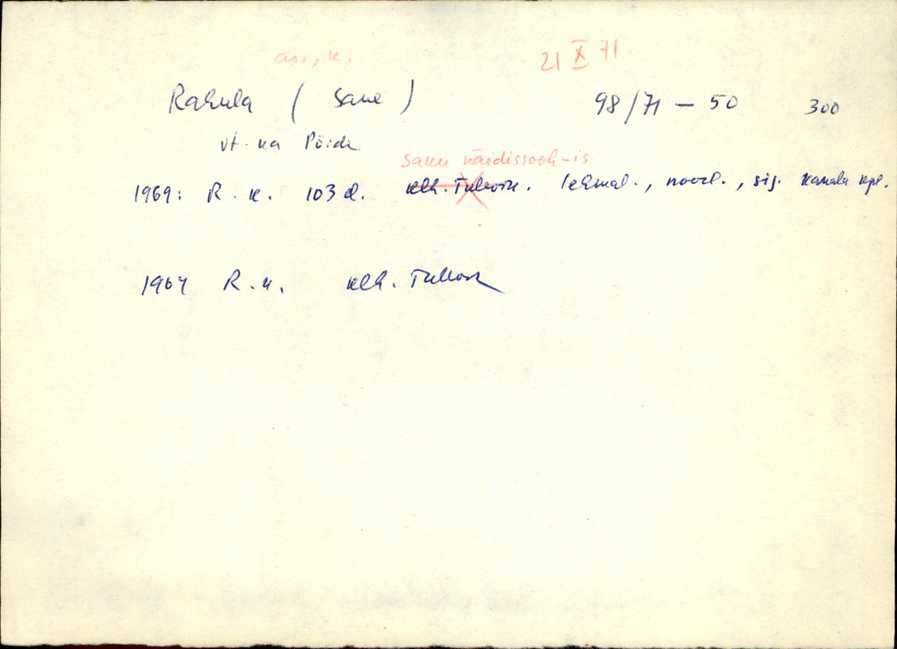 as., k. 21 X 71
Rahula (Saue) 98/71 — 50 300
vt. ka Pöide
Saku näidissovh-is
1969: R. k. 103 el. klh. lehmal., noorl., sig. kanala kpl.
1964 R. k. klh.